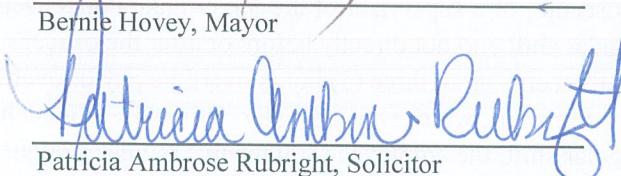 Bernie Hovey, Mayor
Patricia Ambrose Rubright
Patricia Ambrose Rubright, Solicitor